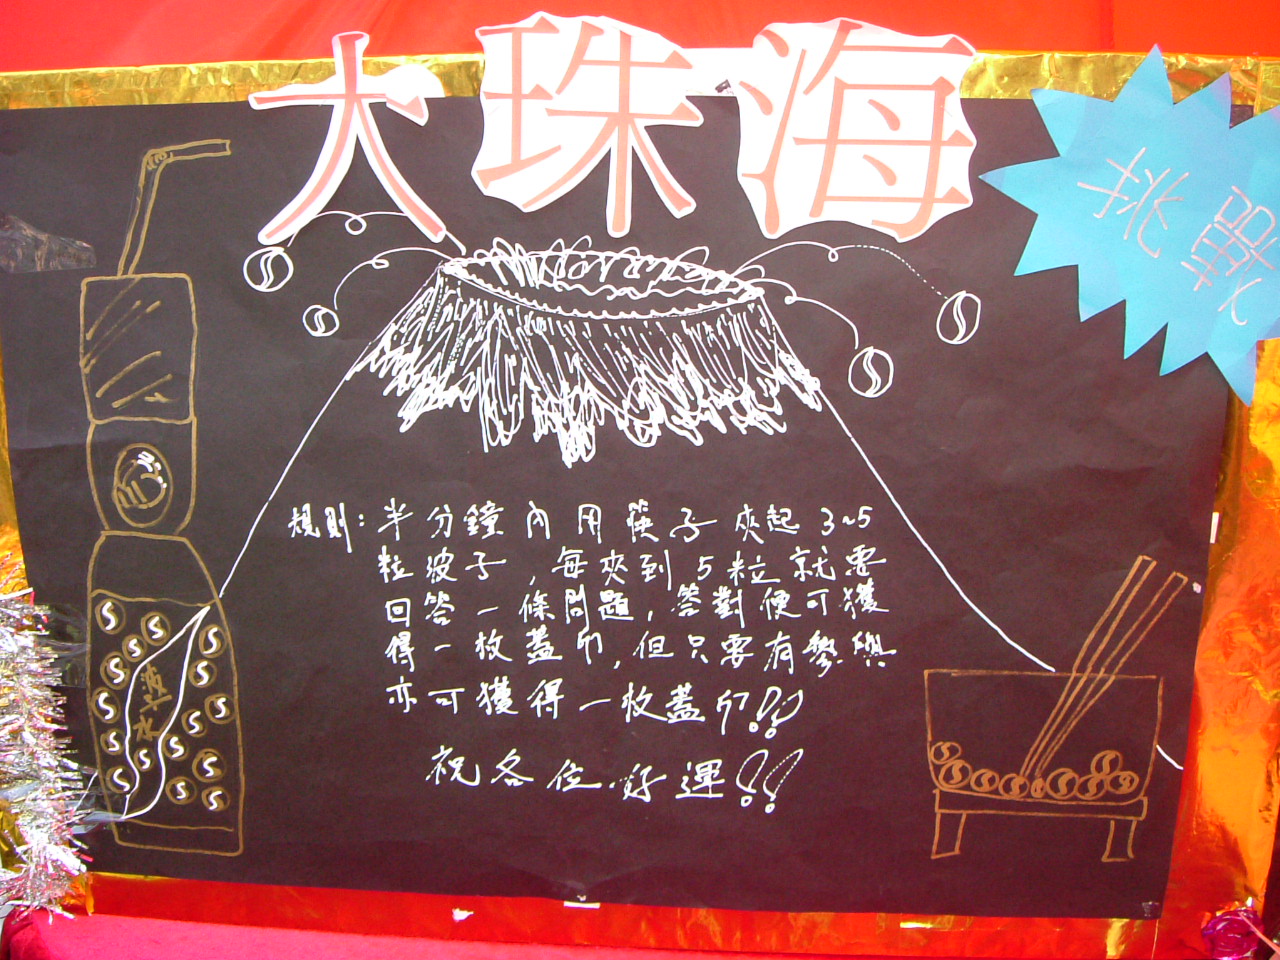 大珠海
挑戰
規則：半分鐘內用筷子夾起3~5
粒波子，每夾到5粒就要
回答一條問題，答對便可獲
得一枚蓋印，但只要有參與
亦可獲得一枚蓋印!!
祝各位好運!!
波子水